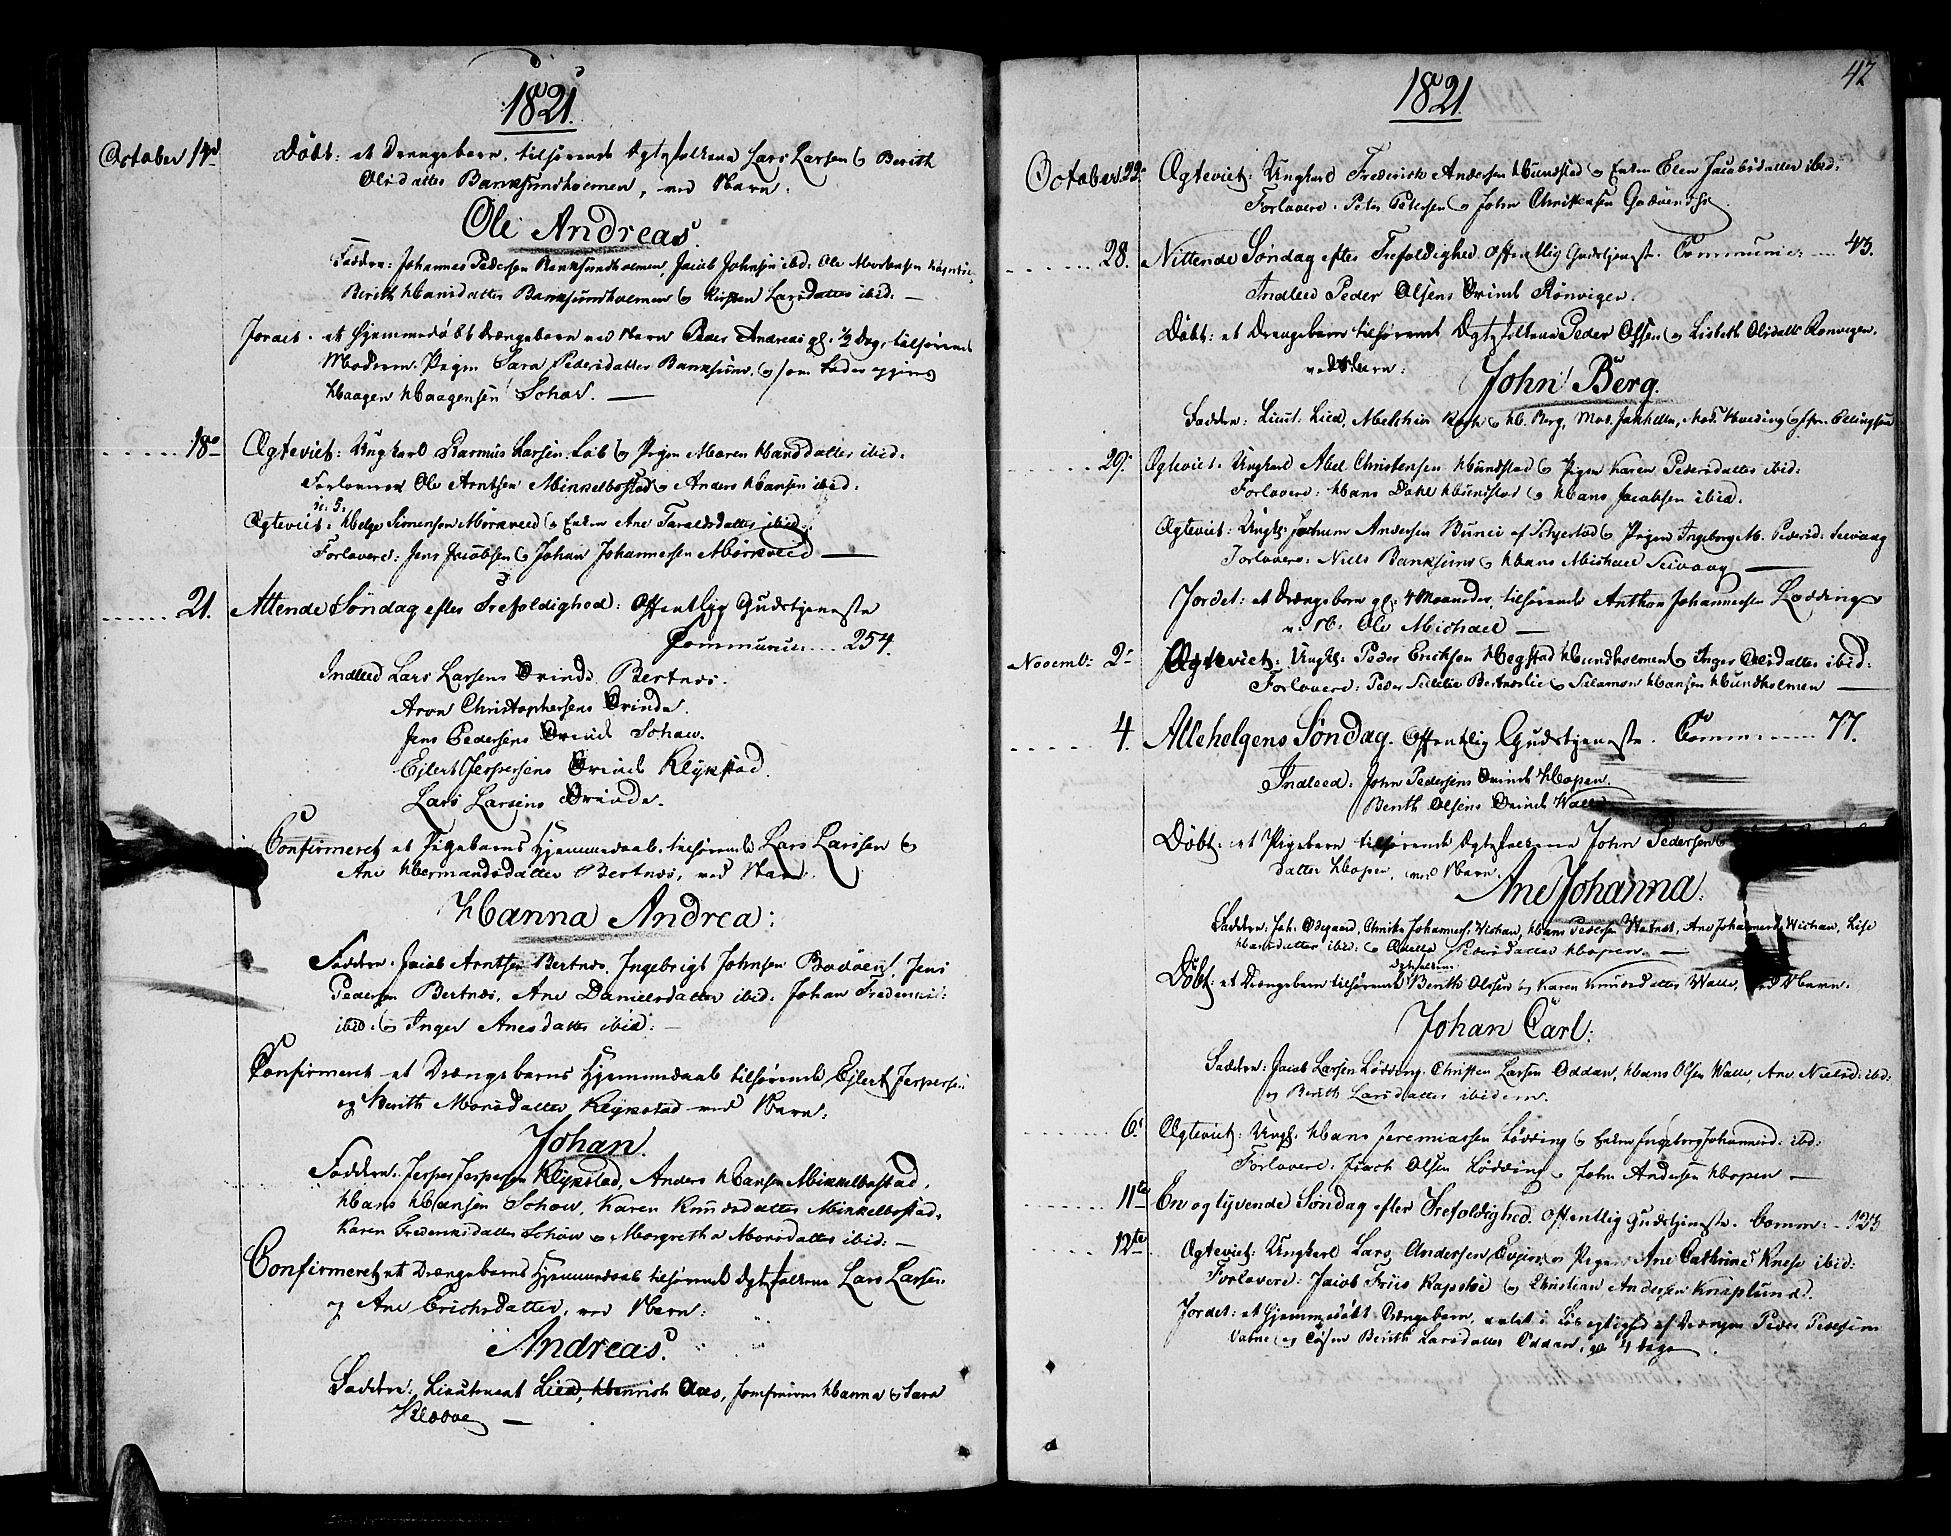 1821.
October 14d Døbt: et Drengebarn, tilhørende Egtefolkene Lars Larsen og Berith
Olsdatter Banksundholmen, ved Navn:
Ole Andreas.
Faddere: Johannes Pedersen Banksundholmen, Jacob Johnsen ibd: Ole
Berith Hansdatter Banksundholmen og Kirsten Larsdatter ibid: —
Jordet: et Hjemmedøbt Drængebarn ved Navn Peder Andreas gl: 1/2 Dag, tilhørende
Moderen Pigen Sara Pedersdatter Banksund, og som Fader
Haagen Haagensen Schov. —
18de Ægteviet: Ungkarl Rasmus Larsen Løb og Pigen Maren Hansdatter ibid:
Forlovere Ole Arntsen Mikkelbostad og Anders Hansen ibid:
Ægteviet: Helge Simensen Mørkved og Enken Ane Taraldsdatter ibid:
Forlovere: Jens Jacobsen og Johan Johannessen Mørkved —
21. Attende Søndag efter Trefoldighed: Offentlig Gudstjeneste
Communic: .... 254.
Indleed Lars Larsens Qvinde Bertnes.
Aron Christophersens Qvinde.
Jens Pedersens Qvinde Schow.
Ejlert Jespersens Qvinde Kløkstad.
Lars Larsens Qvinde.
Confirmeret et Pigebarns Hjemmedaab, tilhørende Lars Larsen og
Ane Hermandsdatter Bertnes, ved Navn:
Hanna Andrea:
Faddere: Jacob Arntsen Bertnes, Ingebrigt Johnsen Bodøen, Jens
Pedersen Bertnes, Ane Danielsdatter ibid: Johan Frederik:
ibid: og Inger Anesdatter ibid: —
Confirmeret et Drængebarns Hjemmedaab tilhørende Ejlert Jespersen
og Berith Monsdatter Kløkstad ved Navn:
Johan.
Faddere: Jesper Jespersen Kløkstad, Anders Hansen Mikkelbostad,
Hans Hansen Schow, Karen Knudsdatter Mikkelbostad,
Karen Frederiksdatter Schow og Margretha Monsdatter ibid: —
Confirmeret et Drængebarns Hjemmedaab tilhørende Egtefolkene Lars Larsen
og Ane Erichsdatter, ved Navn:
Andreas.
Faddere: Lieutnant Lied, Henrich Aas, Jomfruerne Hanna og Sara
Kløve —
1821
42
October 22de Ægteviet: Ungkarl Frederik Andersen Hundstad og Enken Elen Jacobsdatter ibid:
Forlovere: Peter Petersen og John Christensen
28. Nittende Søndag efter Trefoldighed Offentlig Gudstjeneste. Communic: .... 43.
Indleed Peder Olsens Qvinde Rønvigen.
Døbt: et Drengebarn tilhørende Egtefolkene Peder Olsen og Lisbeth Olsdatter Rønvigen,
ved Navn:
John Berg.
Faddere: Lieut. Lied, Melchior Koch og H. Berg, Mad. Jakhelln, Mad. og Jfr. Ellingsen
29. Ægteviet: Ungkarl Abel Christensen Hundstad og Pigen Karen Pedersdatter ibid:
Forlovere: Hans Dahl Hundstad og Hans Jacobsen ibid.
Ægteviet: Ungk: Jochum Andersen af Skjerstad og Pigen Ingeborg M. Pedersd: Seivaag
Forlovere: Niels Banksund og Hans Michael Seivaag —
Jordet: et Drængebarn gl: 4 Maaneder, tilhørende Anthon Johannessen Løding
v. N: Ole Michael —
Novemb: 2. Ægteviet: Ungk: Peder Eriksen Hegstad Hundholmen og Inger Olsdatter ibid:
Forlovere: Peder Bertneslie og Salamon Hansen Hundholmen —
4. Allehelgens Søndag. Offentlig Gudstjeneste. Comm: .... 77.
Indleed: John Pedersens Qvinde Hopen.
Berith Olsens Qvinde Walle
Døbt: et Pigebarn tilhørende Egtefolkene John Pedersen og
datter Hopen, ved Navn:
Ane Johanna:
Faddere: Joh. Odegaard, Johannes: Wichan, Hans Pedersen Watnet, Ane Johannesd: Wichan, Lise
Hansdatter ibid: og Pedersdatter Hopen —
Døbt: et Drængebarn tilhørende Egtefolkene Berith Olsen og Karen Knudsdatter Walle, ved Navn:
Johan Carl:
Faddere: Jacob Larsen Løding, Christen Larsen Oddan, Hans Olsen Walle, Ane Nielsd: ibid:
og Berith Larsdatter ibidem.
6. Ægteviet: Ungk: Hans Jeremiassen Løding og Enken Ingeborg Johannesd: ibd:
Forlovere: Olsen Løding og John Andersen Hopen —
11te En og tyvende Søndag efter Trefoldighed. Offentlig Gudstjeneste. Comm: .. 123
12te Ægteviet: Ungkarl Lars Andersen Evjen og Pigen Ane Cathrine ibid:
Forlovere: Jacob Friis Kapstø og Christian Andersen Knaplund.
Jordet: et hjemmedøbt Drængebarn, avlet i Løsagtighed af Drengen Peder Pedersen
Vatne og Pigen Berith Larsdatter Oddan, gl 4 dage.